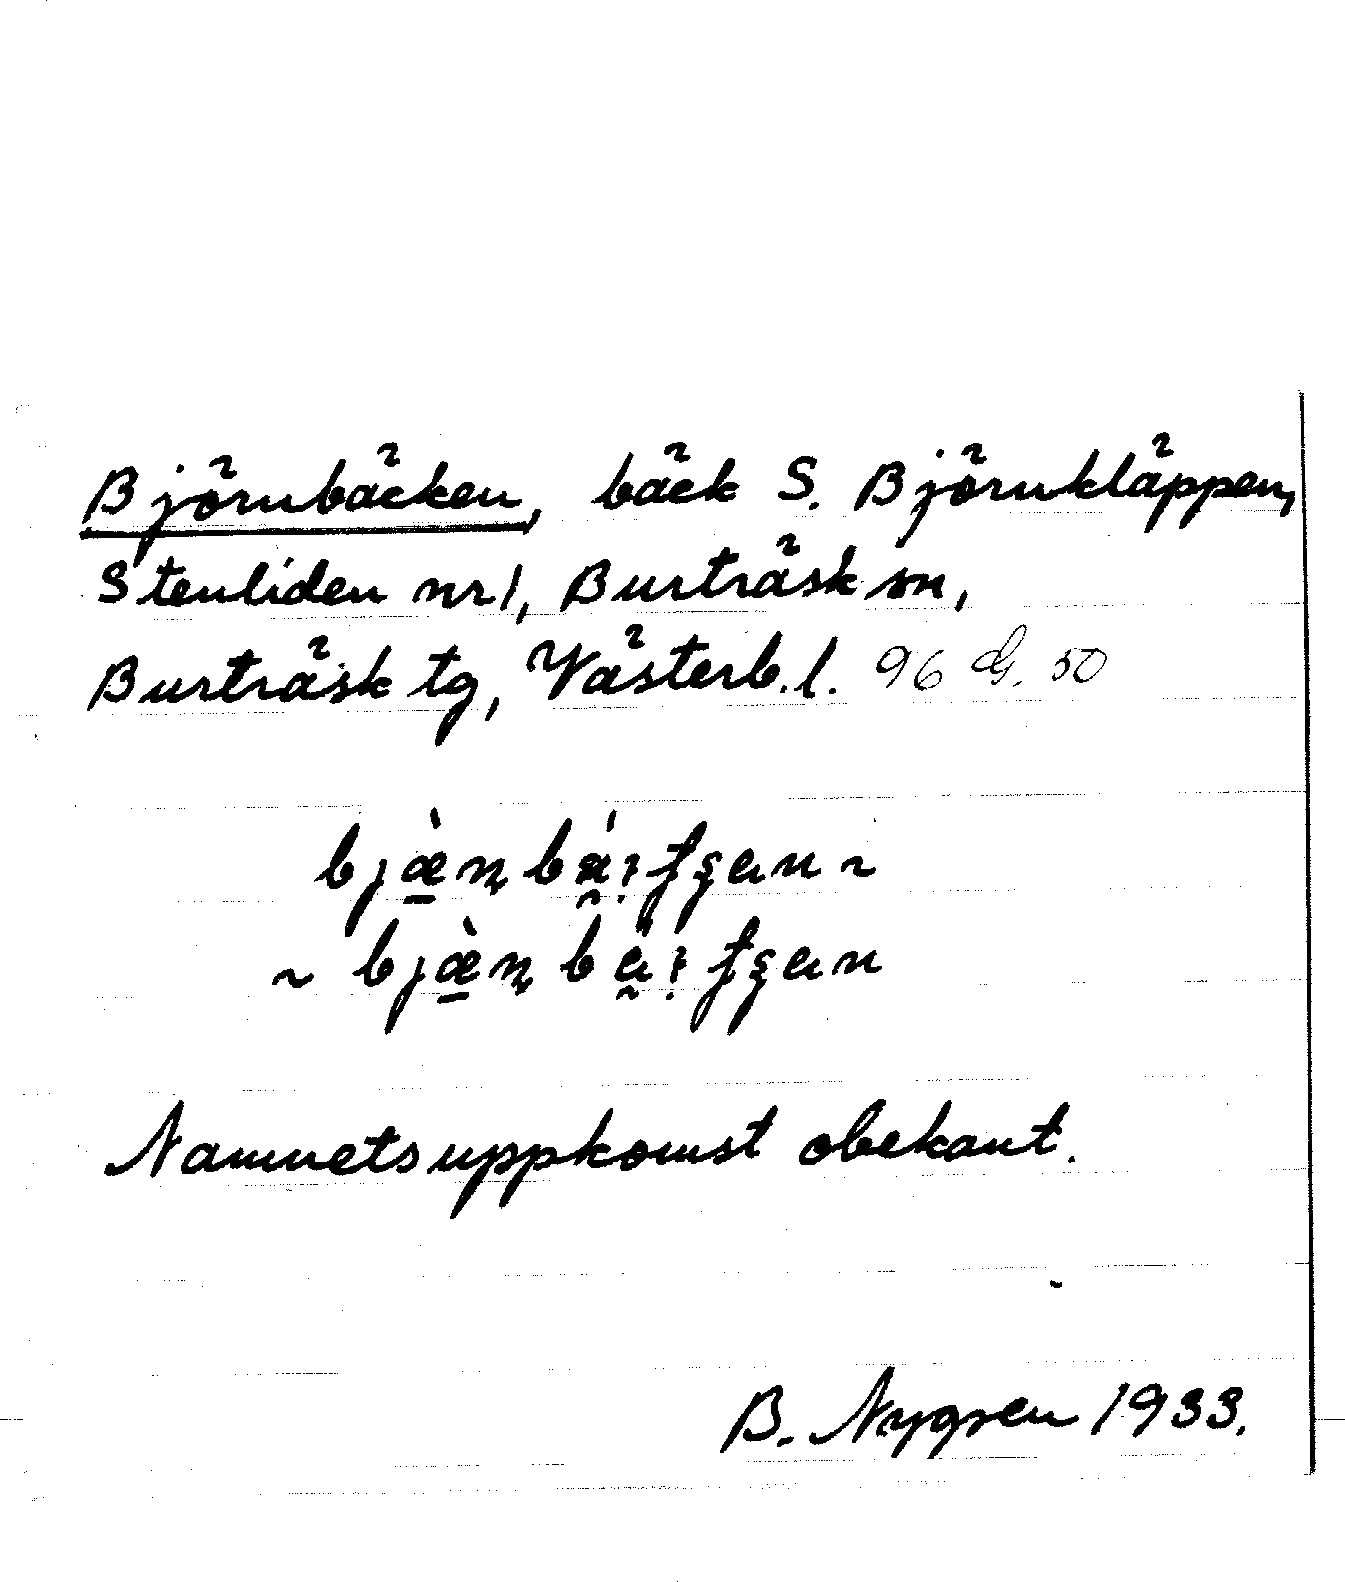 Björnbäcken, bäck S. Björnkläppen,
Stenliden nr 1, Burträsk sn,
Burträsk tg, Västerb. l. 96 G. 50
Namnets uppkomst obekant.
B. Nygren 1933.